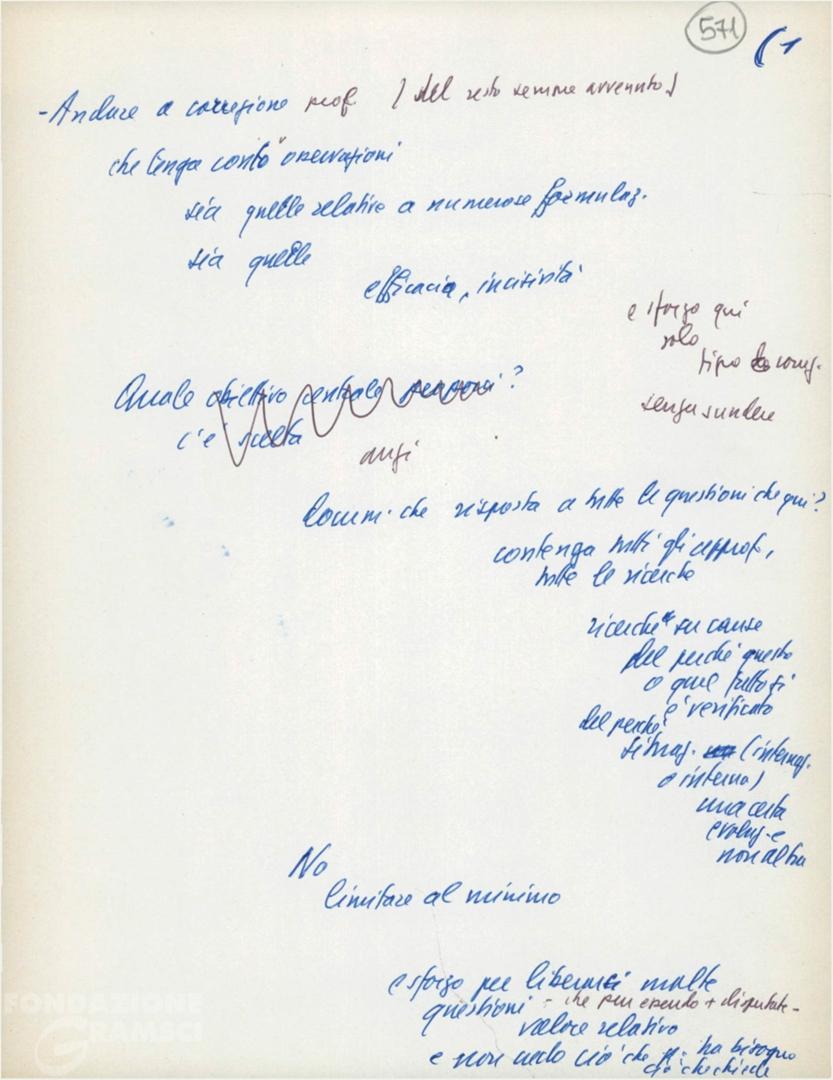 571
(1
- Andare a correzione prof. (del resto sempre avvenuto)
che tenga conto osservazioni
sia quelle relative a numerose formulaz.
sia quelle
efficacia, incisività
e sforzo qui
solo
tipo
senza
Quale obiettivo centrale ?
c'è scelta
anzi
Docum. che risposta a tutte le questioni che qui?
contenga tutti gli approf.,
tutte le ricerche
ricerche su cause
del perché questo
o quel fatto si
è verificato
del perché
situaz. (internaz.
o interna)
una certa
evoluz. e
non altra
No
limitare al minimo
e sforzo per liberarci molte
questioni - che pur essendo + disputate -
valore relativo
e non vedo ciò che ha bisogno
ciò che chiede
FONDAZIONE
GRAMSCI